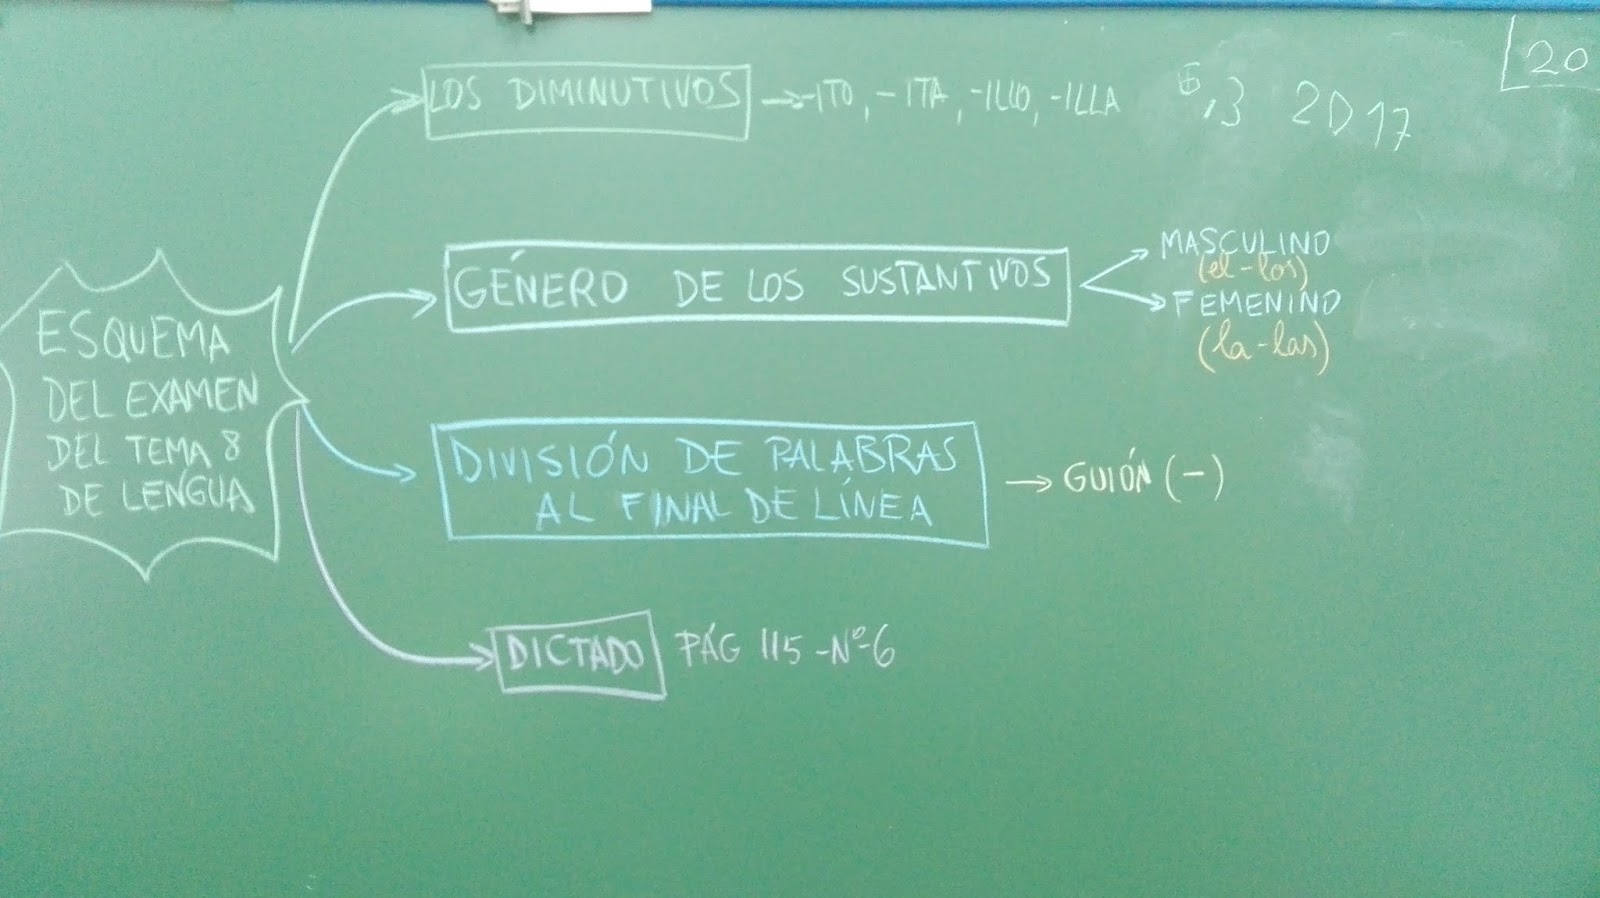 20
LOS DIMINUTIVOS → -ITO, -ITA, -ILLO, -ILLA
6,3 2D17
GÉNERO DE LOS SUSTANTIVOS
MASCULINO
(el-los)
FEMENINO
(la-las)
ESQUEMA
DEL EXAMEN
DEL TEMA 8
DE LENGUA
DIVISIÓN DE PALABRAS
AL FINAL DE LÍNEA
→ GUIÓN (-)
DICTADO PÁG 115 -Nº-6